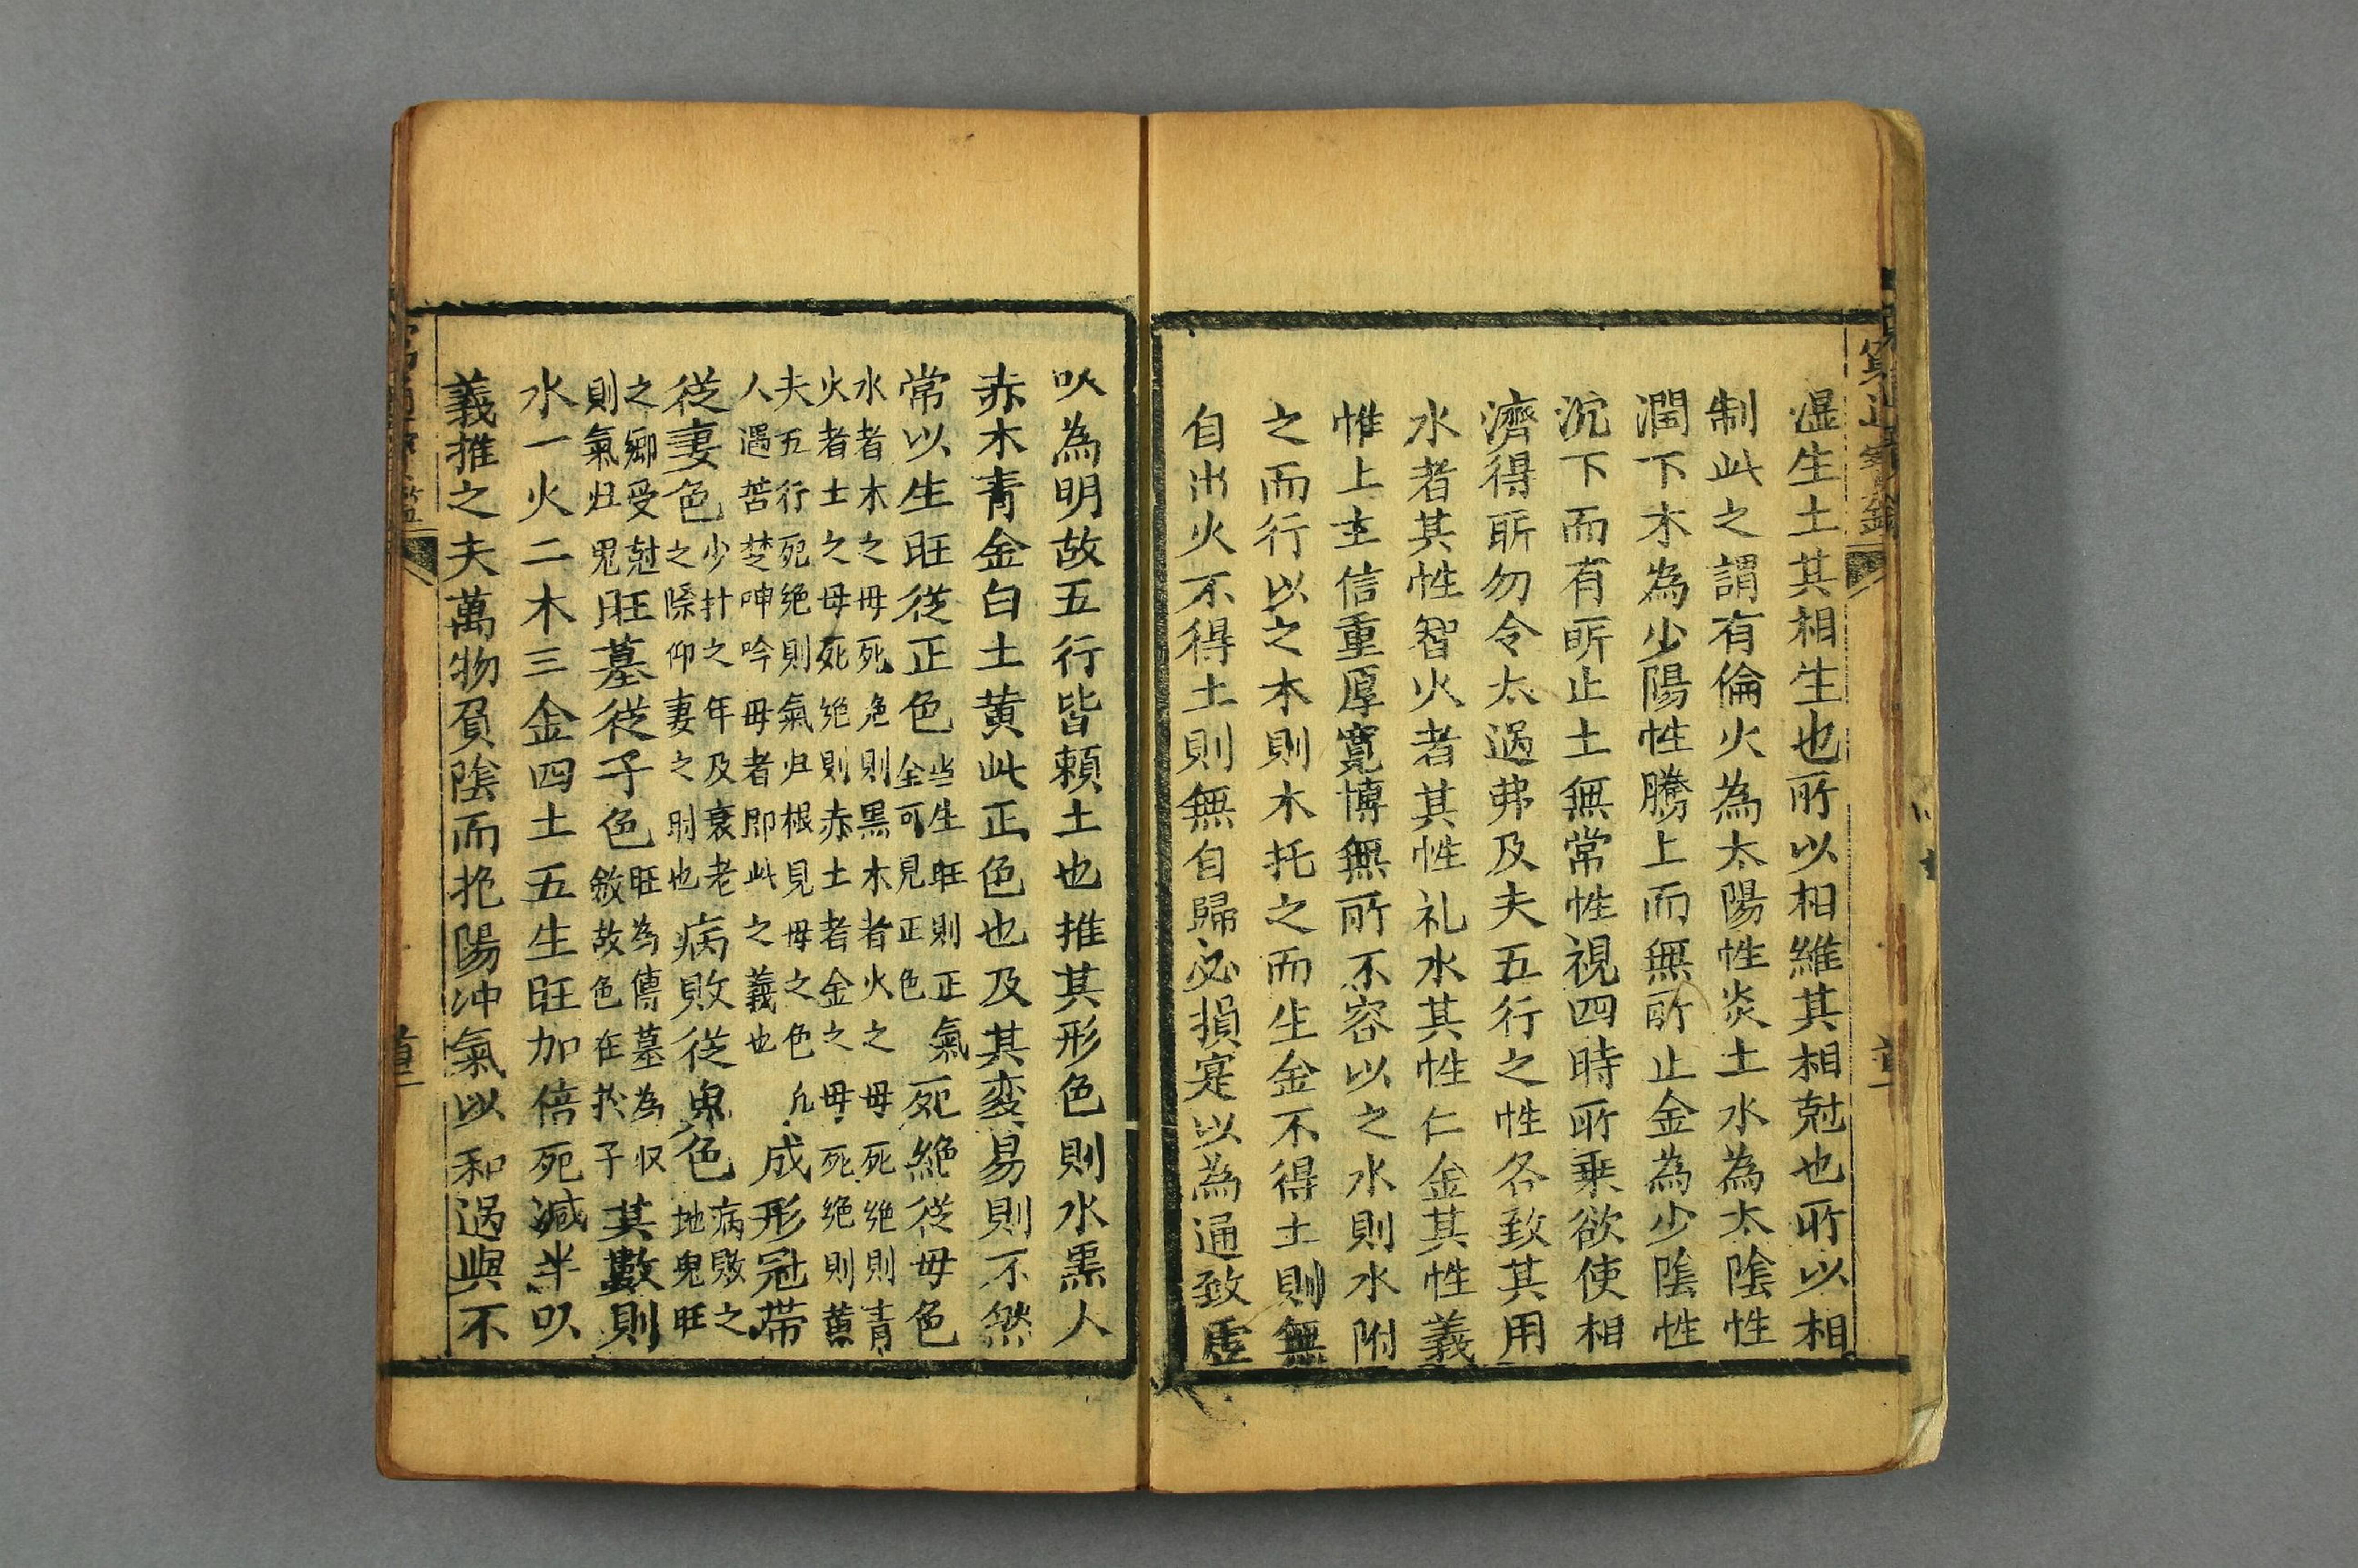 湿生土其相生也所以相維其相尅也所以相
制此之謂有倫火為太陽性炎土水為太陰性
潤下木為少陽性騰上而無所止金為少陰性
沉下而有所止土無常性視四時所乗欲使相
濟得所勿令太過弗及夫五行之性各致其用
水者其性智火者其性礼水其性仁金其性義
惟上主信重厚寛博無所不容以之水則水附
之而行以之木則木托之而生金不得土則無
自出火不得土則無自歸必損寔以為通致虚
以為明故五行皆頼土也推其形色則水黒人
赤木青金白土黄此正色也及其変易則不然
常以生旺従正色
当生旺則正氣
全可見正色
死絶従母色
水者木之母死绝則黒木者火之母死绝則青
火者土之母死绝則赤土者金之母死绝則黄
夫五行死绝則氣归根見母之色
人遇苦楚呻吟母者即此之義也
凢成形冠帯
従妻色
少壮之年及衰老
之際仰妻之时也
病敗従鬼色
病敗之
地鬼旺
之鄉受尅
則氣归鬼
旺墓従子色
旺為傳墓為収
敛故色在於子
其數則
水一火二木三金四土五生旺加倍死減半以
義推之夫萬物負陰而抱陽冲氣以和過與不